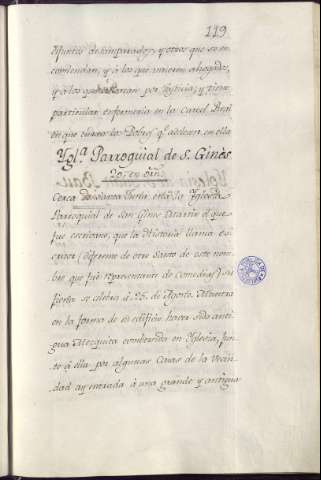 119
difuntos desamparados, y otros que se en-
comiendan, y à los que mueren ahogados,
y à los que matan por Justicia; y tiene
particular enfermeria en la Carcel Real
en que curar los Pobres qe. adolecen en ella
Ygl.ª Parroquial de S. Ginès
Cerca de Puerta està la Yglesia
Parroquial de San Ginès Martir el que
fue escrivano, que la Historia llama es-
(diferente de otro Santo de este nom-
bre que fue representante de Comedias) su
fiesta se celebra à 25. de Agosto. Muestra
en la forma de su edificio haver sido anti-
gua Mezquita combertida en Yglesia, jun-
to à ella por algunas Casas de la Vecin-
dad ay entrada à una grande y antigua